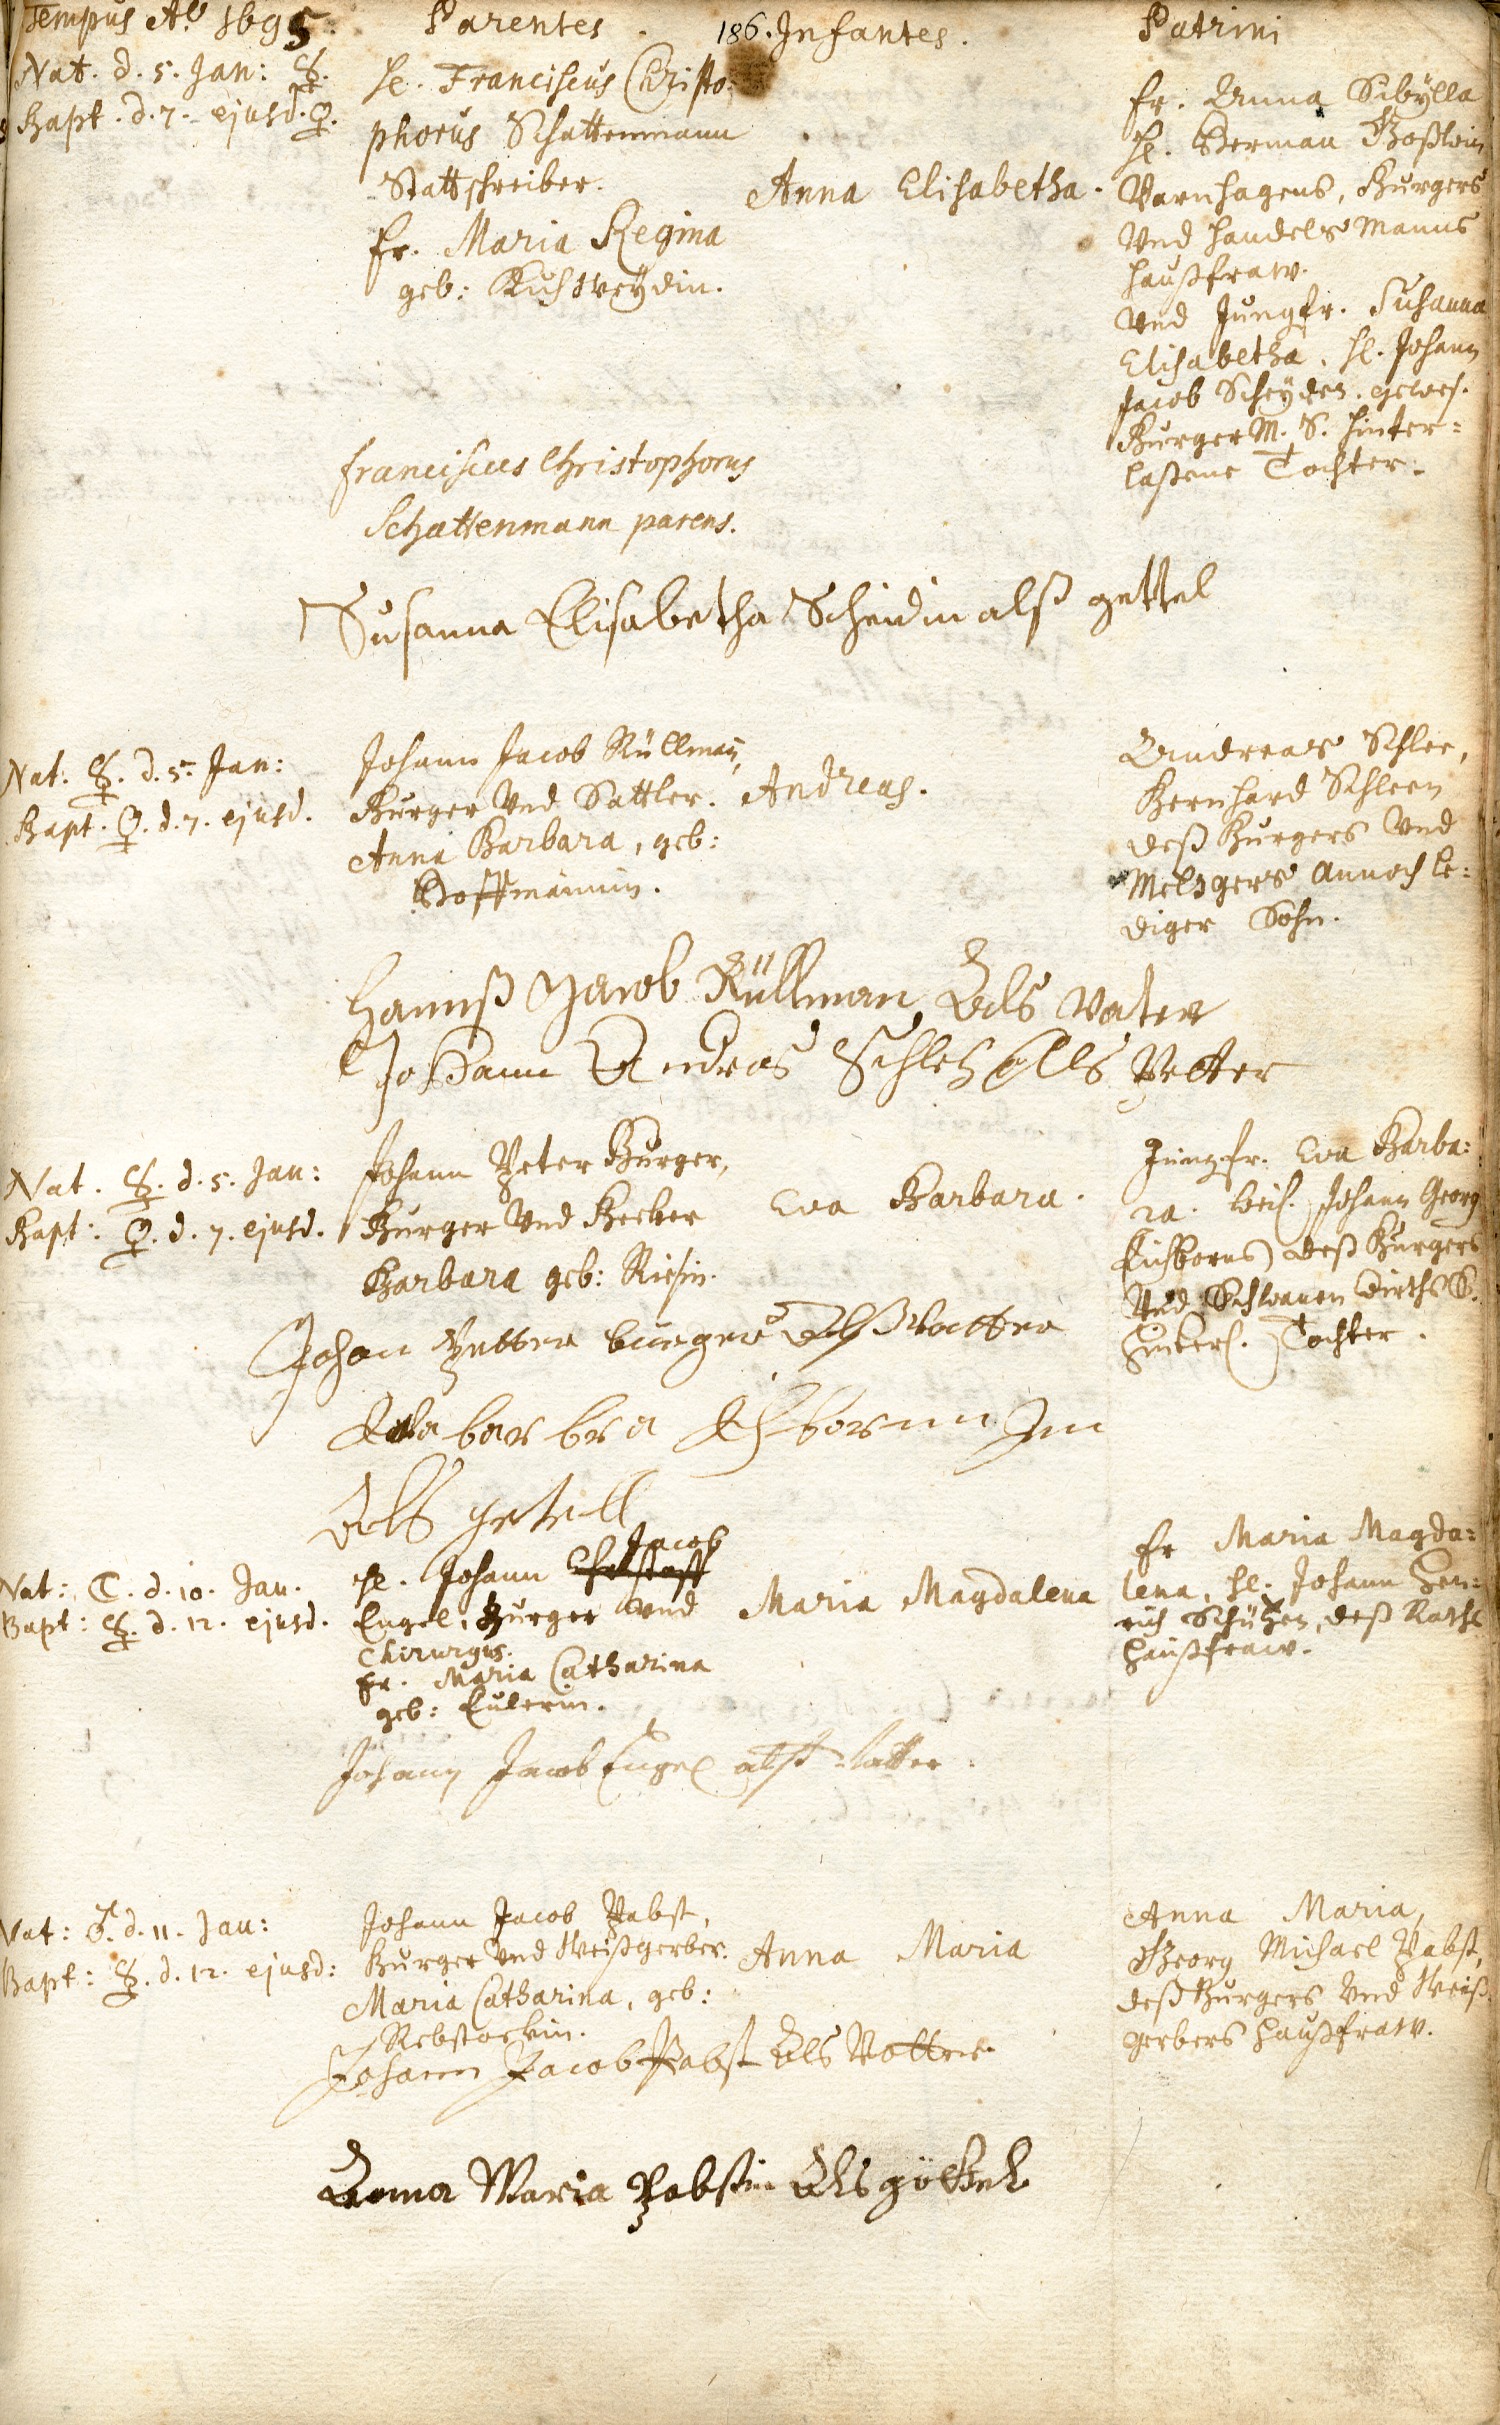 Tempus Aō 1695. Parentes. 186. Infantes. Patrini
Nat. d. 5. Jan: ☿.
Bapt. d. 7. ejusd. ♀.
H. Franciscus Christo-
phorus Schattenmann
Stattschreiber.
Fr. Maria Regina
geb:
Anna Elisabetha.
Fr. Anna Sibÿlla
H. Herman Goßwin
Varnhagens, Burgers
Vnd Handels Manns
Haußfraw.
Vnd Jungfr. Susanna
Elisabetha, H. Johann
Jacob Scheÿden, gewes.
Burger M. S. hinter=
laßene Tochter.
Franciscus Christophorus
Schattenmann parens.
Susanna Elisabetha Scheidin alß gettel
Nat. ☿. d. 5. Jan:
Bapt. ♀. d. 7. ejusd.
Johann Jacob Rüllman,
Burger Vnd Sattler.
Anna Barbara, geb:
Hoffmännin.
Andreas.
Andreas Schlee,
Bernhard Schleen
deß Burgers Vnd
Metzgers annoch le=
diger Sohn.
Hannß Jacob Rüllman Als Vater
Johann Andreas Schleh Als Petter
Nat. ☿. d. 5. Jan:
Bapt: ♀. d. 7. ejusd.
Johann Peter Burger,
Burger Vnd Becker
Barbara geb: Riesin.
Eva Barbara.
Jungfr. Eva Barba=
ra. weil. Johann Georg
Eichborns deß Burgers
Vnd Schwanen Wirths S.
hinterl. Tochter.
Johan Petter burger Alß Vatter
Eva barbra
Als getell
Nat: ☾. d. 10. Jan.
Bapt: ☿. d. 12. ejusd.
Jacob
H. Johann
Engel, Burger Vnd
Chirurgus.
Fr. Maria Catharina
geb: Eulerin.
Maria Magdalena
Fr Maria Magda=
lena, H. Johann Hen=
rich Schützen, deß Raths
Haußfraw.
Johann Jacob Engel alß Vatter
Nat: ♂. d. 11. Jan:
Bapt: ☿. d. 12. ejusd:
Johann Jacob Pabst,
Burger Vnd Weißgerber.
Maria Catharina, geb:
Rebstockin.
Anna Maria
Anna Maria,
Georg Michael Pabst,
deß Burgers Vnd Weiß
gerbers Haußfraw.
Johann Jacob Pabst Als Vatter
Anna Maria Pabstin Als göttel